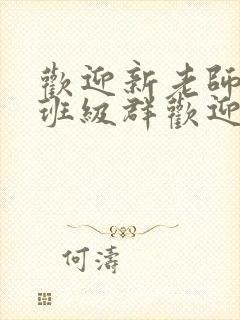 歡迎新老師
班級群歡迎
何濤